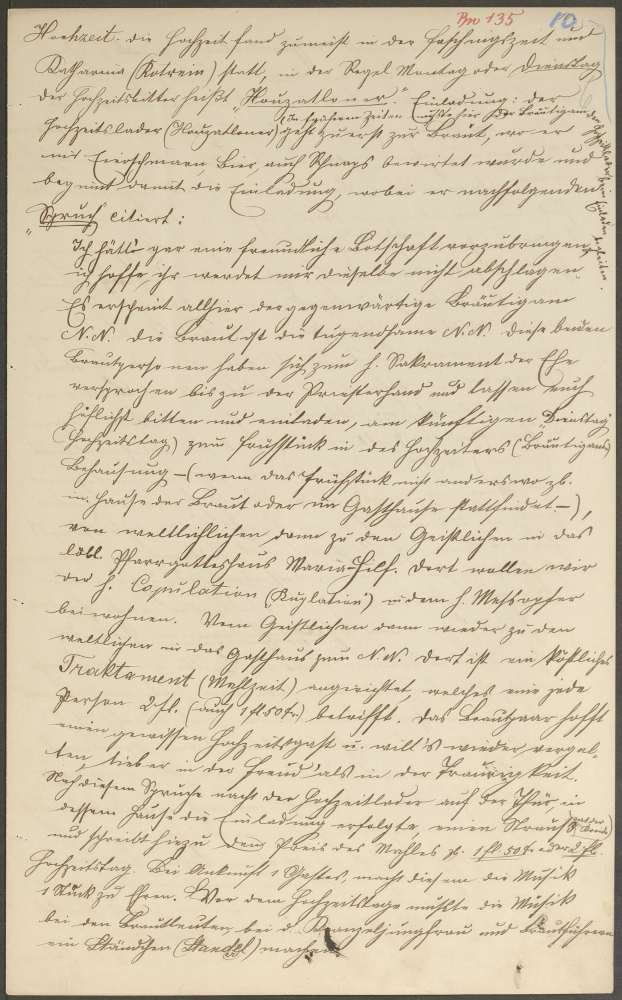 Bn 135 10
Hochzeit. Die Hochzeit fand zumeist in der Faschingszeit und
Katharina (Katrein) statt, in der Regel Montag oder Dienstag
Der Hochzeitsbitter heißt "Houzatloner." Einladung: der
(In späteren Zeiten mußte hier der Bräutigam den Hochzeitslader beim Einladen begleiten.
Hochzeitslader (Houzatloner) geht zuerst zur Braut, wo er
mit Eierschmarn, Bier, auch Schnaps bewirtet wurde und
beginnt damit die Einladung, wobei er nachfolgenden
Spruch citiert:
"Ich hätt' gar eine freundliche Botschaft vorzubringen,
ich hoffe, ihr werdet mir dieselbe nicht abschlagen.
Es erscheint allhier der gegenwärtige Bräutigam
N.N. die Braut ist die tugendsame N.N. diese beiden
Brautpersonen haben sich zum h. Sakrament der Ehe
versprochen bis zu der Priesterhand und lassen euch
höflichst bitten und einladen, am künftigen "Dienstag"
(Hochzeitstag) zum Frühstück in des Hochzeiters (Bräutigams)
Behausung – (wenn das Frühstück nicht anderswo zb.
im Hause der Braut oder im Gasthause stattfindet –),
von weltlichen dann zu den Geistlichen in das
löbl. Pfarrgotteshaus Maria-Hilf. Dort wollen wir
der h. Copulation (Kuplation) u. dem h. Messopfer
beiwohnen. Vom Geistlichen dann wieder zu den
weltlichen in das Gasthaus zum N.N. Dort ist ein köstliches
Traktament (Mahlzeit) angerichtet, welches eine jede
Person 2 fl. (auch 1 fl 50 kr) betrifft. Das Brautpaar hofft
einen gewissen Hochzeitsgast u. will's wieder vergel-
ten, lieber in der Freud' als in der Traurigkeit.
Nach diesem Spruche macht der Hochzeitlader auf der Thür, in
dessem Hause die Einladung erfolgte, einen Strauß
und schreibt hiezu den Preis des Mahles zb. 1 fl. 50 kr. oder 2 fl.
Hochzeitstag. Bei Ankunft 1 Gastes, macht diesem die Musik
1 Stück zu Ehren. Vor dem Hochzeitstage mußte die Musik
bei den Brautleuten, bei d. Kranzeljungfrau und Brautführern
ein Ständchen (Standl) machen.